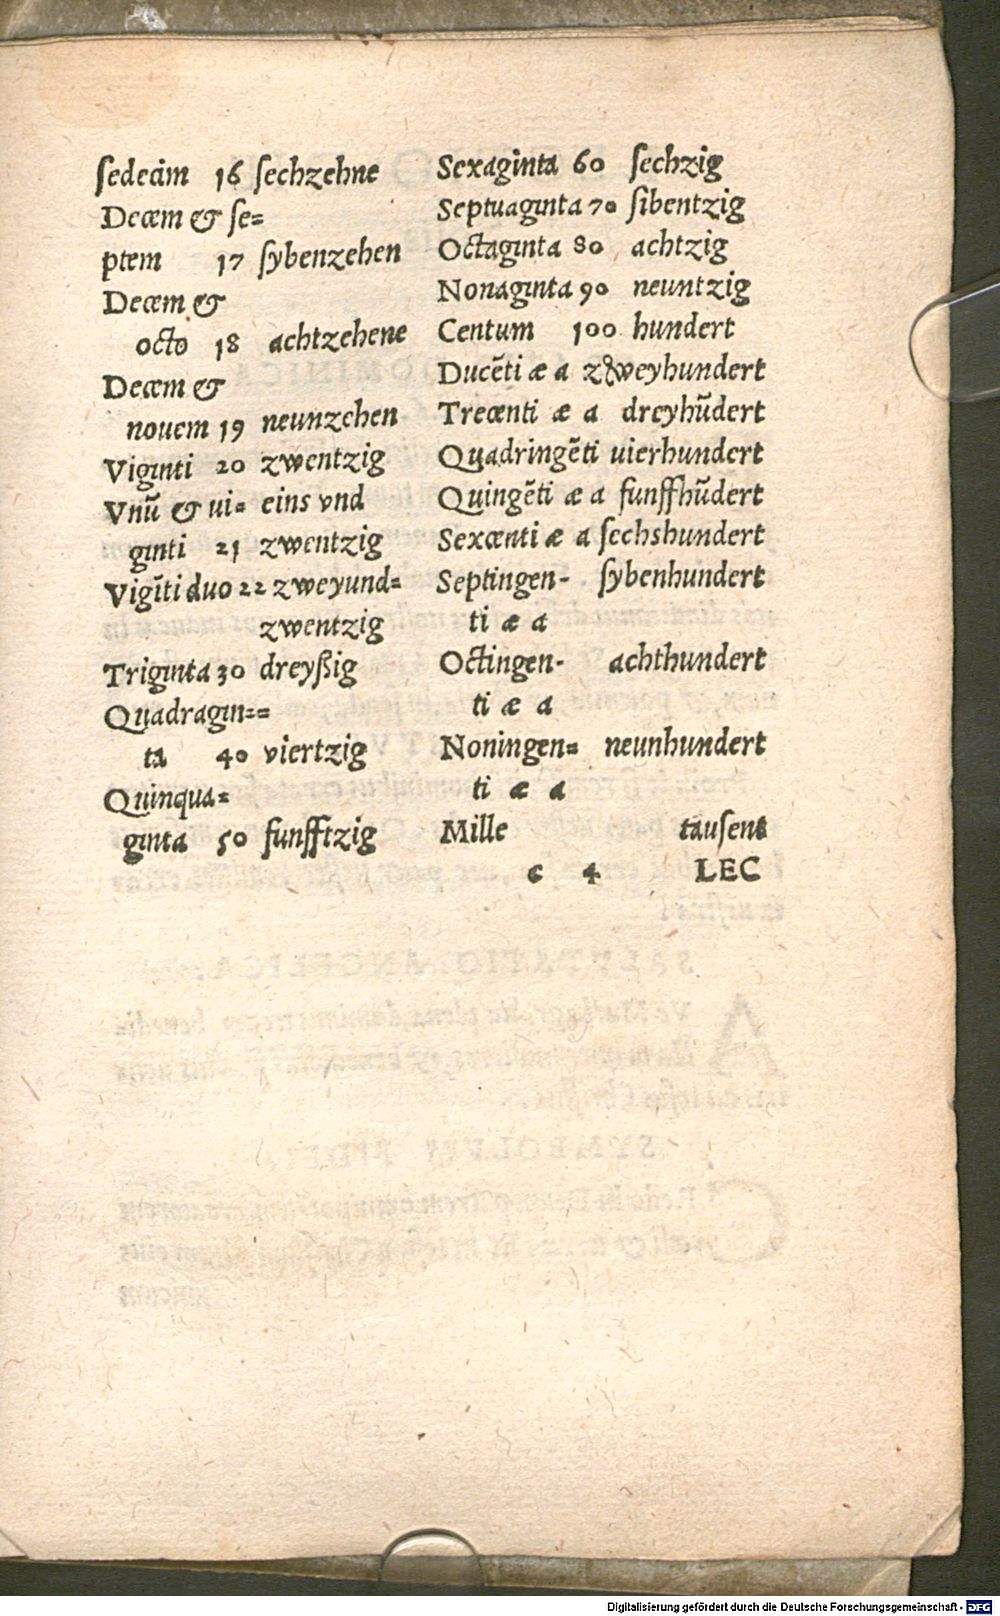 ſedecim 16 ſechzehne
Decem & ſe=
ptem 17 ſybenzehen
Decem &
octo 18 achtzehene
Decem &
nouem 19 neunzehen
Viginti 20 zwentzig
Vnū & ui= eins vnd
ginti 21 zwentzig
Vigīti duo 22 zweyund=
zwentzig
Triginta 30 dreyßig
Quadragin==
ta 40 viertzig
Quinqua=
ginta 50 funfftzig
Sexaginta 60 ſechzig
Septuaginta 70 ſibentzig
Octaginta 80 achtzig
Nonaginta 90 neuntzig
Centum 100 hundert
Ducēti æ a zweyhundert
Trecenti æ a dreyhūdert
Quadringēti uierhundert
Quingēti æ a funffhūdert
Sexcenti æ a ſechshundert
Septingen- ſybenhundert
ti æ a
Octingen- achthundert
ti æ a
Noningen= neunhundert
ti æ a
Mille tauſent
c 4 LEC
Digitalisierung gefördert durch die Deutsche Forschungsgemeinschaft - DFG